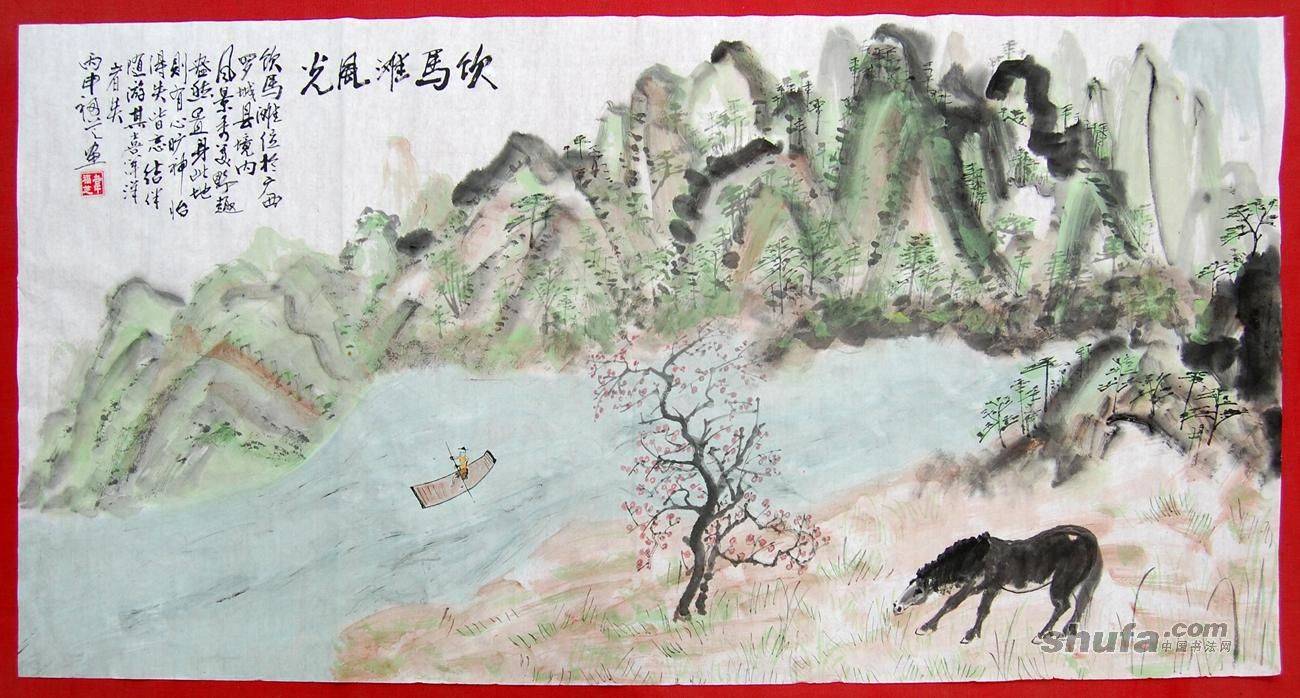 饮馬滩風光
饮馬滩位於广西
罗城县境内
风景秀美野趣
盎然置身此地
则有心旷神怡
得失皆忘结伴
随游其喜洋洋
者矣
丙申福芝画
shufa.com
中国书法网